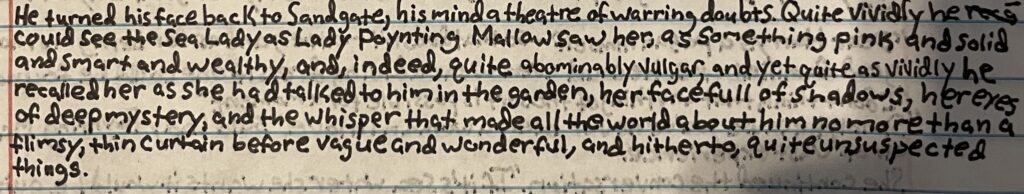 He turned his face back to Sandgate, his mind a theatre of warring doubts. Quite vividly he
could see the Sea Lady as Lady Poynting Mallow saw her, as something pink and solid
and smart and wealthy, and, indeed, quite abominably vulgar, and yet quite as vividly he
recalled her as she had talked to him in the garden, her face full of shadows, her eyes
of deep mystery, and the whisper that made all the world about him no more than a
flimsy, thin curtain before vague and wonderful, and hitherto, quite unsuspected
things.